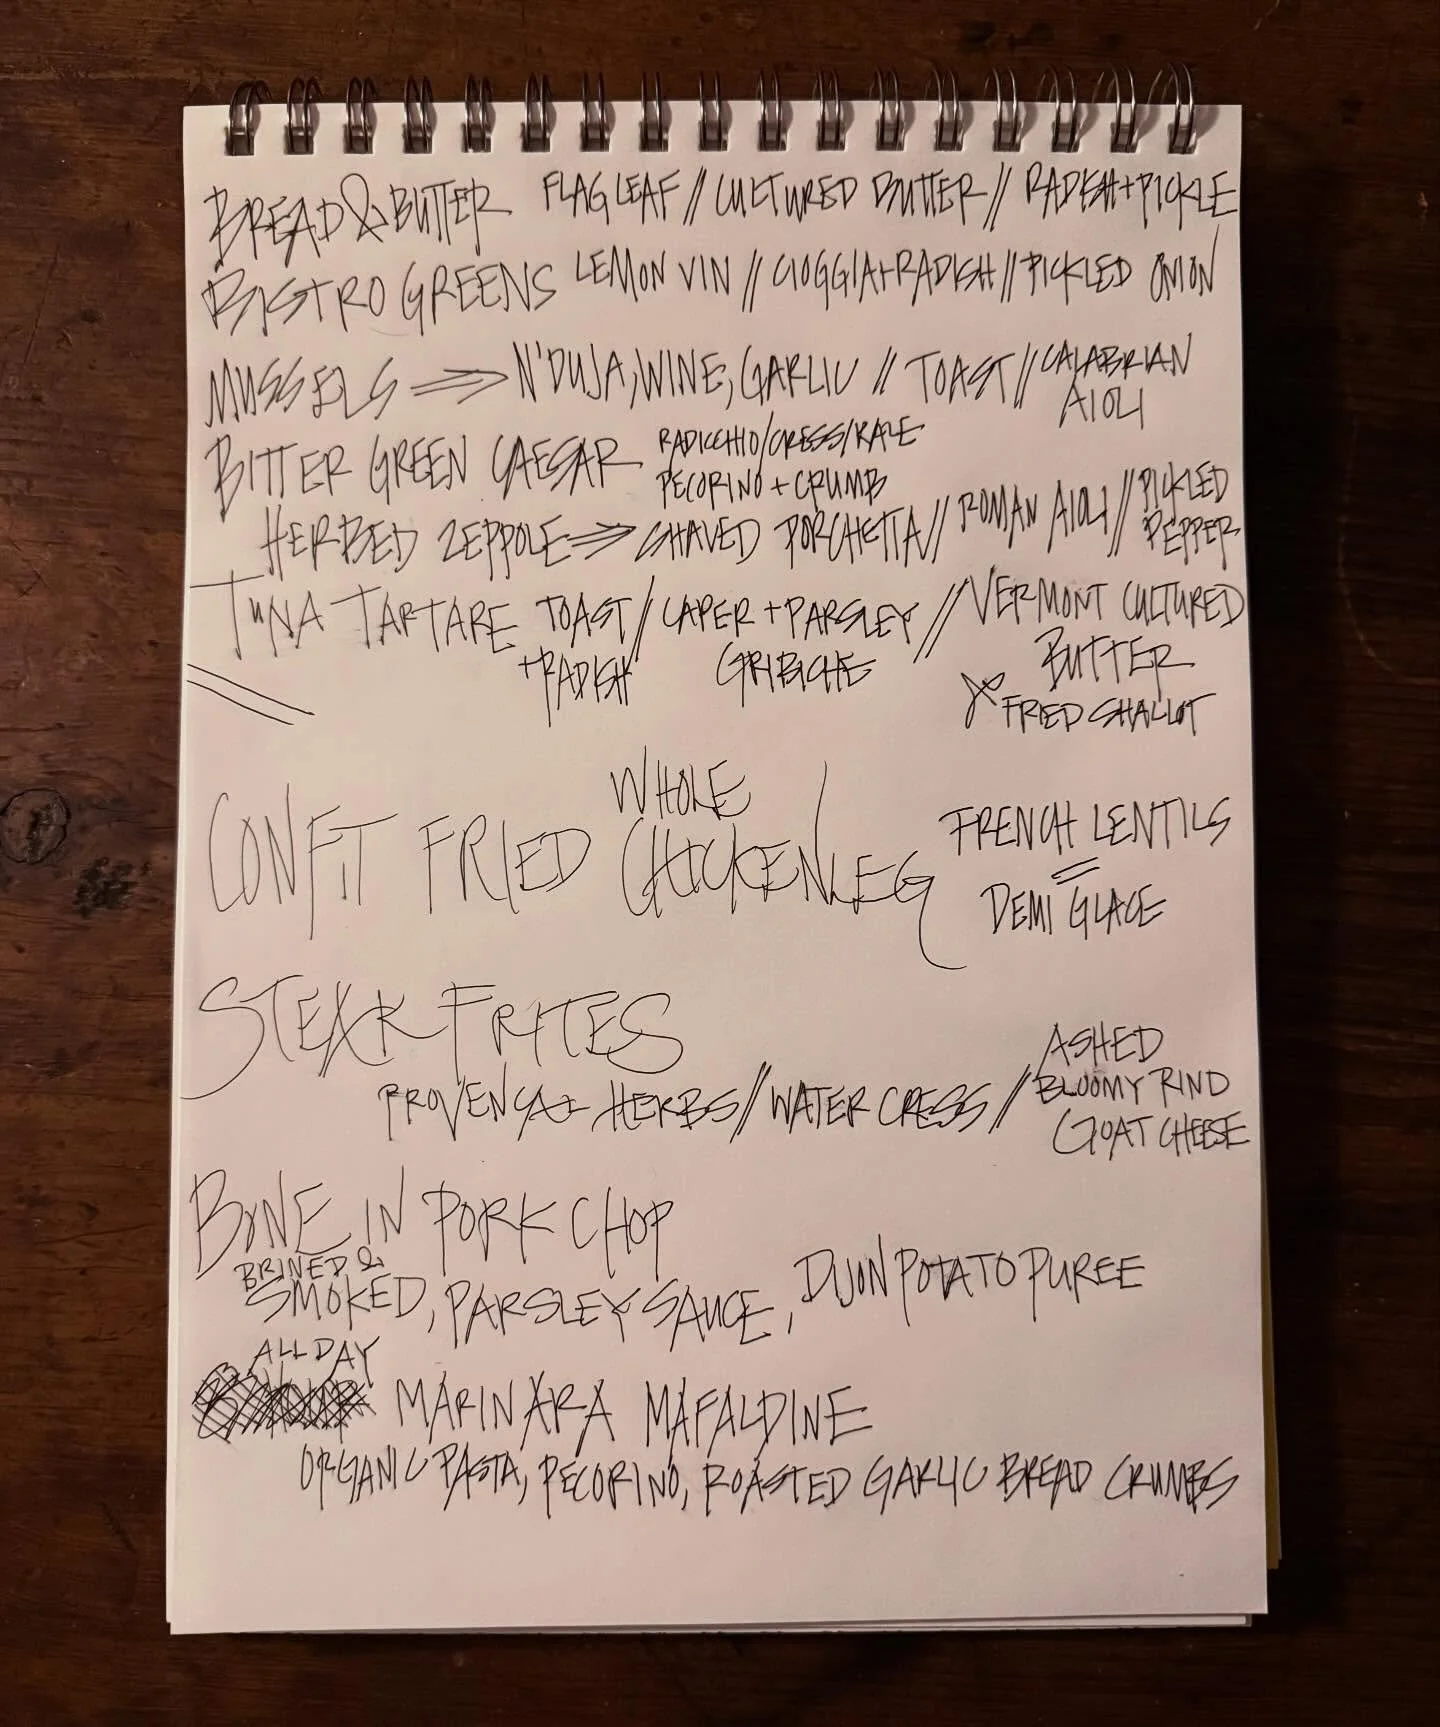 BREAD & BUTTER FLAG LEAF // CULTURED BUTTER // RADISH + PICKLE
BISTRO GREENS LEMON VIN // CIOGGIA + RADISH // PICKLED ONION
MUSSELS ⇒ N'DUJA, WINE, GARLIC // TOAST // CALABRIAN
AIOLI
BITTER GREEN CAESAR RADICCHIO/CRESS/KALE
PECORINO + CRUMB
HERBED ZEPPOLE ⇒ SHAVED PORCHETTA // ROMAN AIOLI // PICKLED
PEPPER
TUNA TARTARE TOAST / CAPER + PARSLEY // VERMONT CULTURED
+RADISH GRIBICHE BUTTER
& FRIED SHALLOT
WHOLE
CONFIT FRIED CHICKEN LEG FRENCH LENTILS
=
DEMI GLACE
STEAK FRITES
PROVENÇAL HERBS // WATER CRESS // ASHED
BLOOMY RIND
GOAT CHEESE
BONE IN PORK CHOP
BRINED &
SMOKED, PARSLEY SAUCE, DIJON POTATO PUREE
ALL DAY
MARINARA MAFALDINE
ORGANIC PASTA, PECORINO, ROASTED GARLIC BREAD CRUMBS